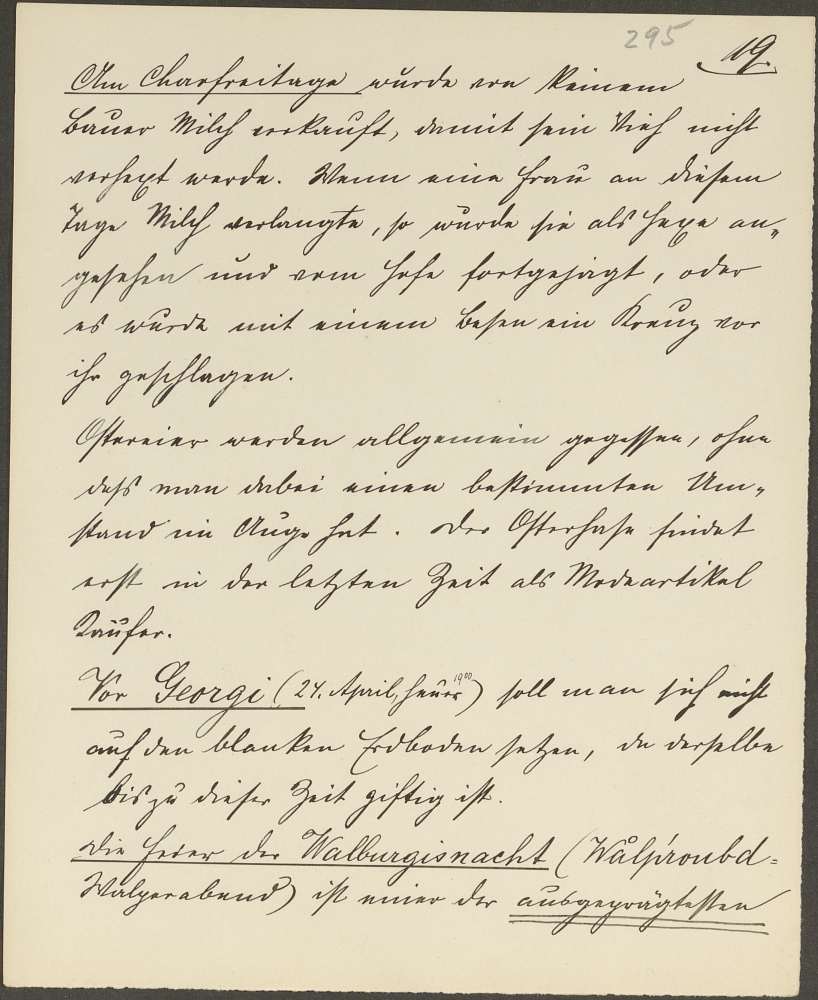 295 19.
Am Charfreitage wurde von keinem
Bauer Milch verkauft, damit sein Vieh nicht
verhext werde. Wenn eine Frau an diesem
Tage Milch verlangte, so wurde sie als Hexe an-
gesehen und vom Hofe fortgejagt, oder
es wurde mit einem Besen ein Kreuz vor
ihr geschlagen.
Ostereier werden allgemein gegessen, ohne
daß man dabei einen bestimmten Um-
stand im Auge hat. Der Osterhase findet
erst in der letzten Zeit als Modeartikel
Käufer.
Vor Georgi (24. April, heuer 1900) soll man sich nicht
auf den blanken Erdboden setzen, da derselbe
bis zu dieser Zeit giftig ist.
Die Feier der Walburgisnacht (Wålp'roubd=
Walperabend) ist einer der ausgeprägtesten